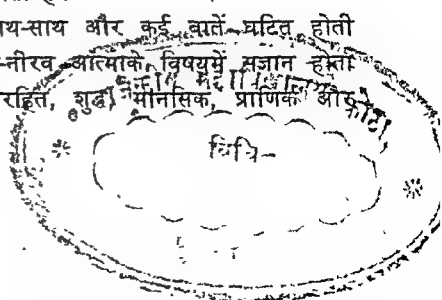 थ-साथ और कई बातें घटित होती
-नीरव आत्माके विषयमें सज्ञान होता
रहित, शुद्ध, मानसिक, प्राणिक और